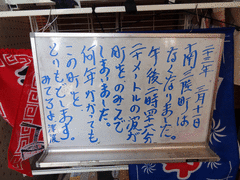 二十三年 三月十一日
南三陸町は
なくなりました。
午後二時四十六分
二十メートルの波が
町をのみこんで
しまいました。
何年かかっても
この町を
とりもどします。
みてろよ 津波